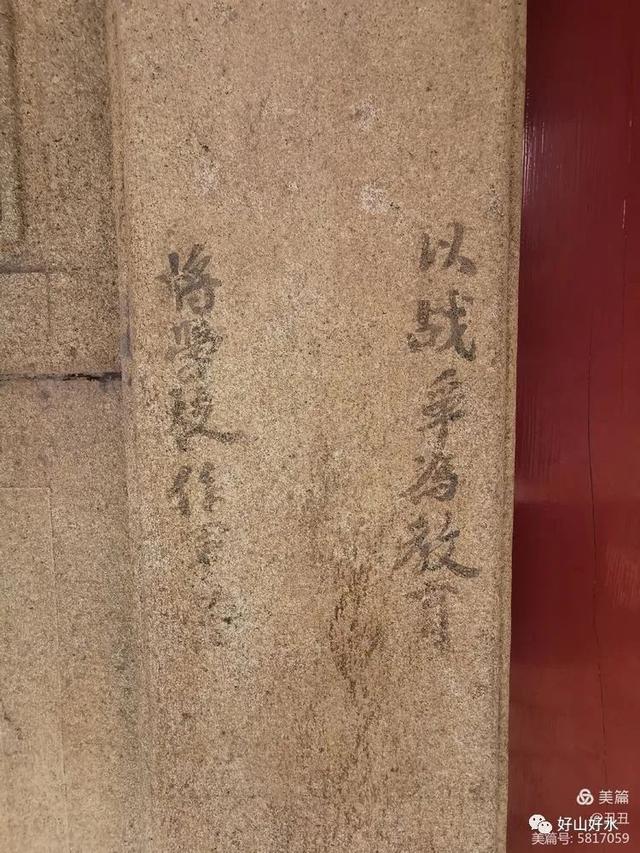 以战争为教育
将学校作军
美篇
@丑丑
好山好水
美篇号: 5817059